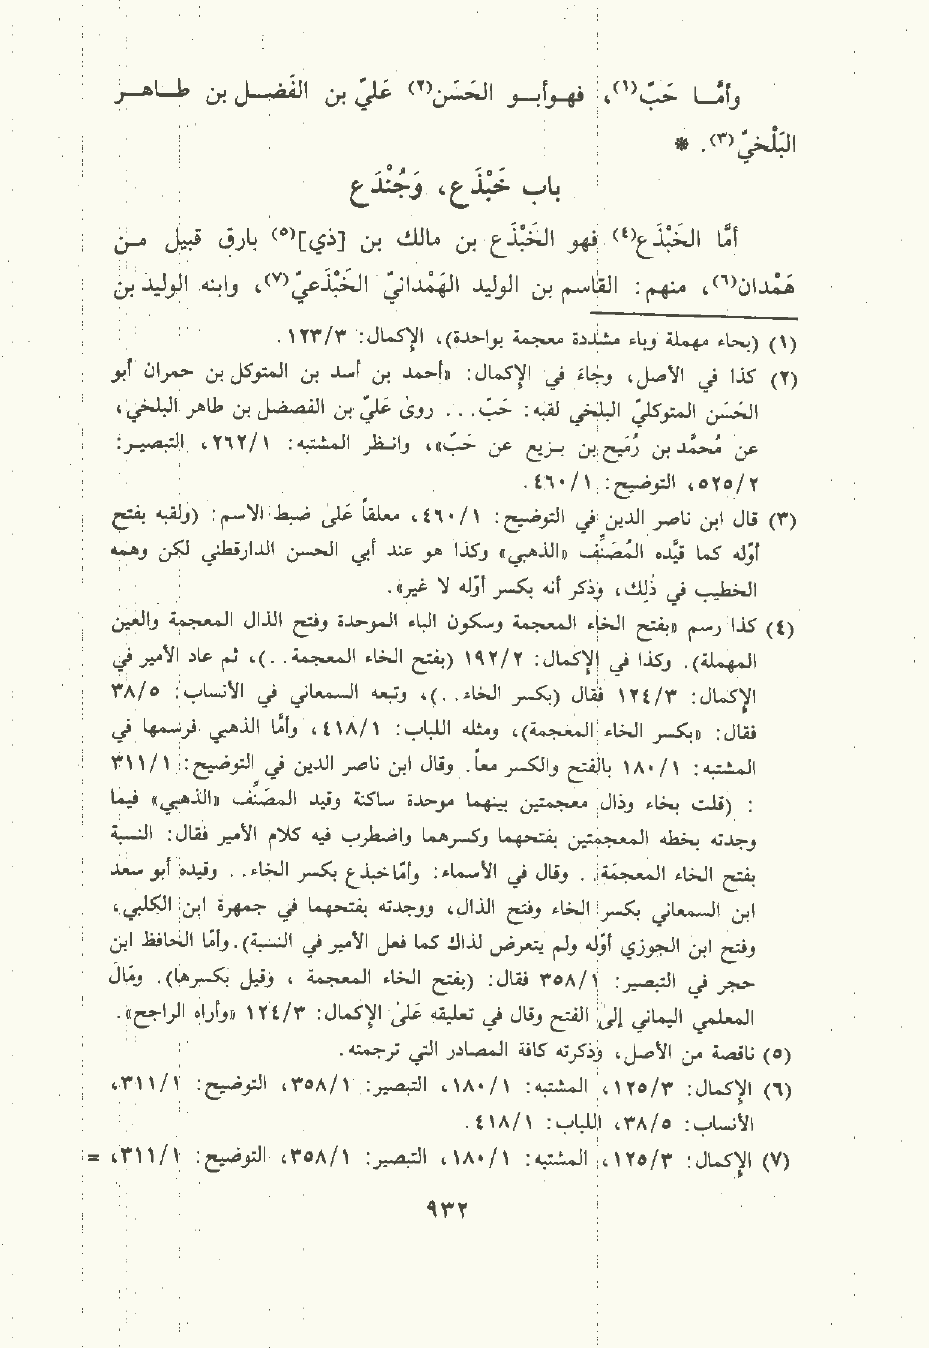 وأمَّـــا حَبّ(١)، فهــوأبــو الحَسَن(٢) عَليّ بن الفَضــل بن طــاهــر
البَلْخيّ(٣). *
باب خَبْذَع، وَجُنْدَع
أمَّا الخَبْذَع(٤) فهو الخَبْذَع بن مالك بن [ذي](٥) بارق قبيل مـن
هَمْدان(٦)، منهم: القاسم بن الوليد الهَمْدانيّ الخَبْذَعيّ(٧)، وابنه الوليد بن
(١) (بحاء مهملة وباء مشددة معجمة بواحدة)، الإكمال: ١٢٣/٣.
(٢) كذا في الأصل، وجاء في الإكمال: «أحمد بن أسد بن المتوكل بن حمران أبو
الحَسَن المتوكليّ البلخي لقبه: حَبّ... روىٰ عَليّ بن الفضل بن طاهر البلخي،
عن مُحمَّد بن رُمَيح بن بـزيع عن حَبّ»، وانـظر المشتبه: ٢٦٢/١، التبصيـر:
٥٢٥/٢، التوضيح: ٤٦٠/١.
(٣) قال ابن ناصر الدين في التوضيح: ٤٦٠/١، معلقاً علىٰ ضبط الاسم: (ولقبه بفتح
أوّله كما قيَّده المُصَنِّف «الذهبي» وكذا هو عند أبي الحسن الدارقطني لكن وهمه
الخطيب في ذٰلِك، وذكر أنه بكسر أوّله لا غير».
(٤) كذا رسم «بفتح الخاء المعجمة وسكون الباء الموحدة وفتح الذال المعجمة والعين
المهملة). وكذا في الإكمال: ١٩٢/٢ (بفتح الخاء المعجمة..)، ثم عاد الأمير في
الإكمال: ١٢٤/٣ فقال (بكسر الخاء..)، وتبعه السمعاني في الأنساب: ٣٨/٥
فقال: «بكسر الخاء المعجمة)، ومثله اللباب: ٤١٨/١، وأمَّا الذهبي فرسمها في
المشتبه: ١٨٠/١ بالفتح والكسر معاً. وقال ابن ناصر الدين في التوضيح: ٣١١/١
: (قلت بخاء وذال معجمتين بينهما موحدة ساكنة وقيد المصَنِّف «الذهبي» فيما
وجدته بخطه المعجمتين بفتحهما وكسرهما واضطرب فيه كلام الأمير فقال: النسبة
بفتح الخاء المعجمَة. . وقال في الأسماء: وأمّاخبذع بكسر الخاء. . وقيده أبو سعد
ابن السمعاني بكسر الخاء وفتح الذال، ووجدته بفتحهما في جمهرة ابن الكلبي،
وفتح ابن الجوزي أوّله ولم يتعرض لذاك كما فعل الأمير في النسبة).وأمّا الحافظ ابن
حجر في التبصير: ٣٥٨/١ فقال: (بفتح الخاء المعجمة ، وقيل بكسرها). ومَال
المعلمي اليماني إلىٰ الفتح وقال في تعليقه علَىٰ الإكمال: ١٢٤/٣ «وأراه الراجح».
(٥) ناقصة من الأصل، وذكرته كافة المصادر التي ترجمته.
(٦) الإكمال: ١٢٥/٣، المشتبه: ١٨٠/١، التبصير: ٣٥٨/١، التوضيح: ٣١١/١،
الأنساب: ٣٨/٥، اللباب: ٤١٨/١.
(٧) الإكمال: ١٢٥/٣، المشتبه: ١٨٠/١، التبصير: ٣٥٨/١، التوضيح: ٣١١/١، =
٩٣٢